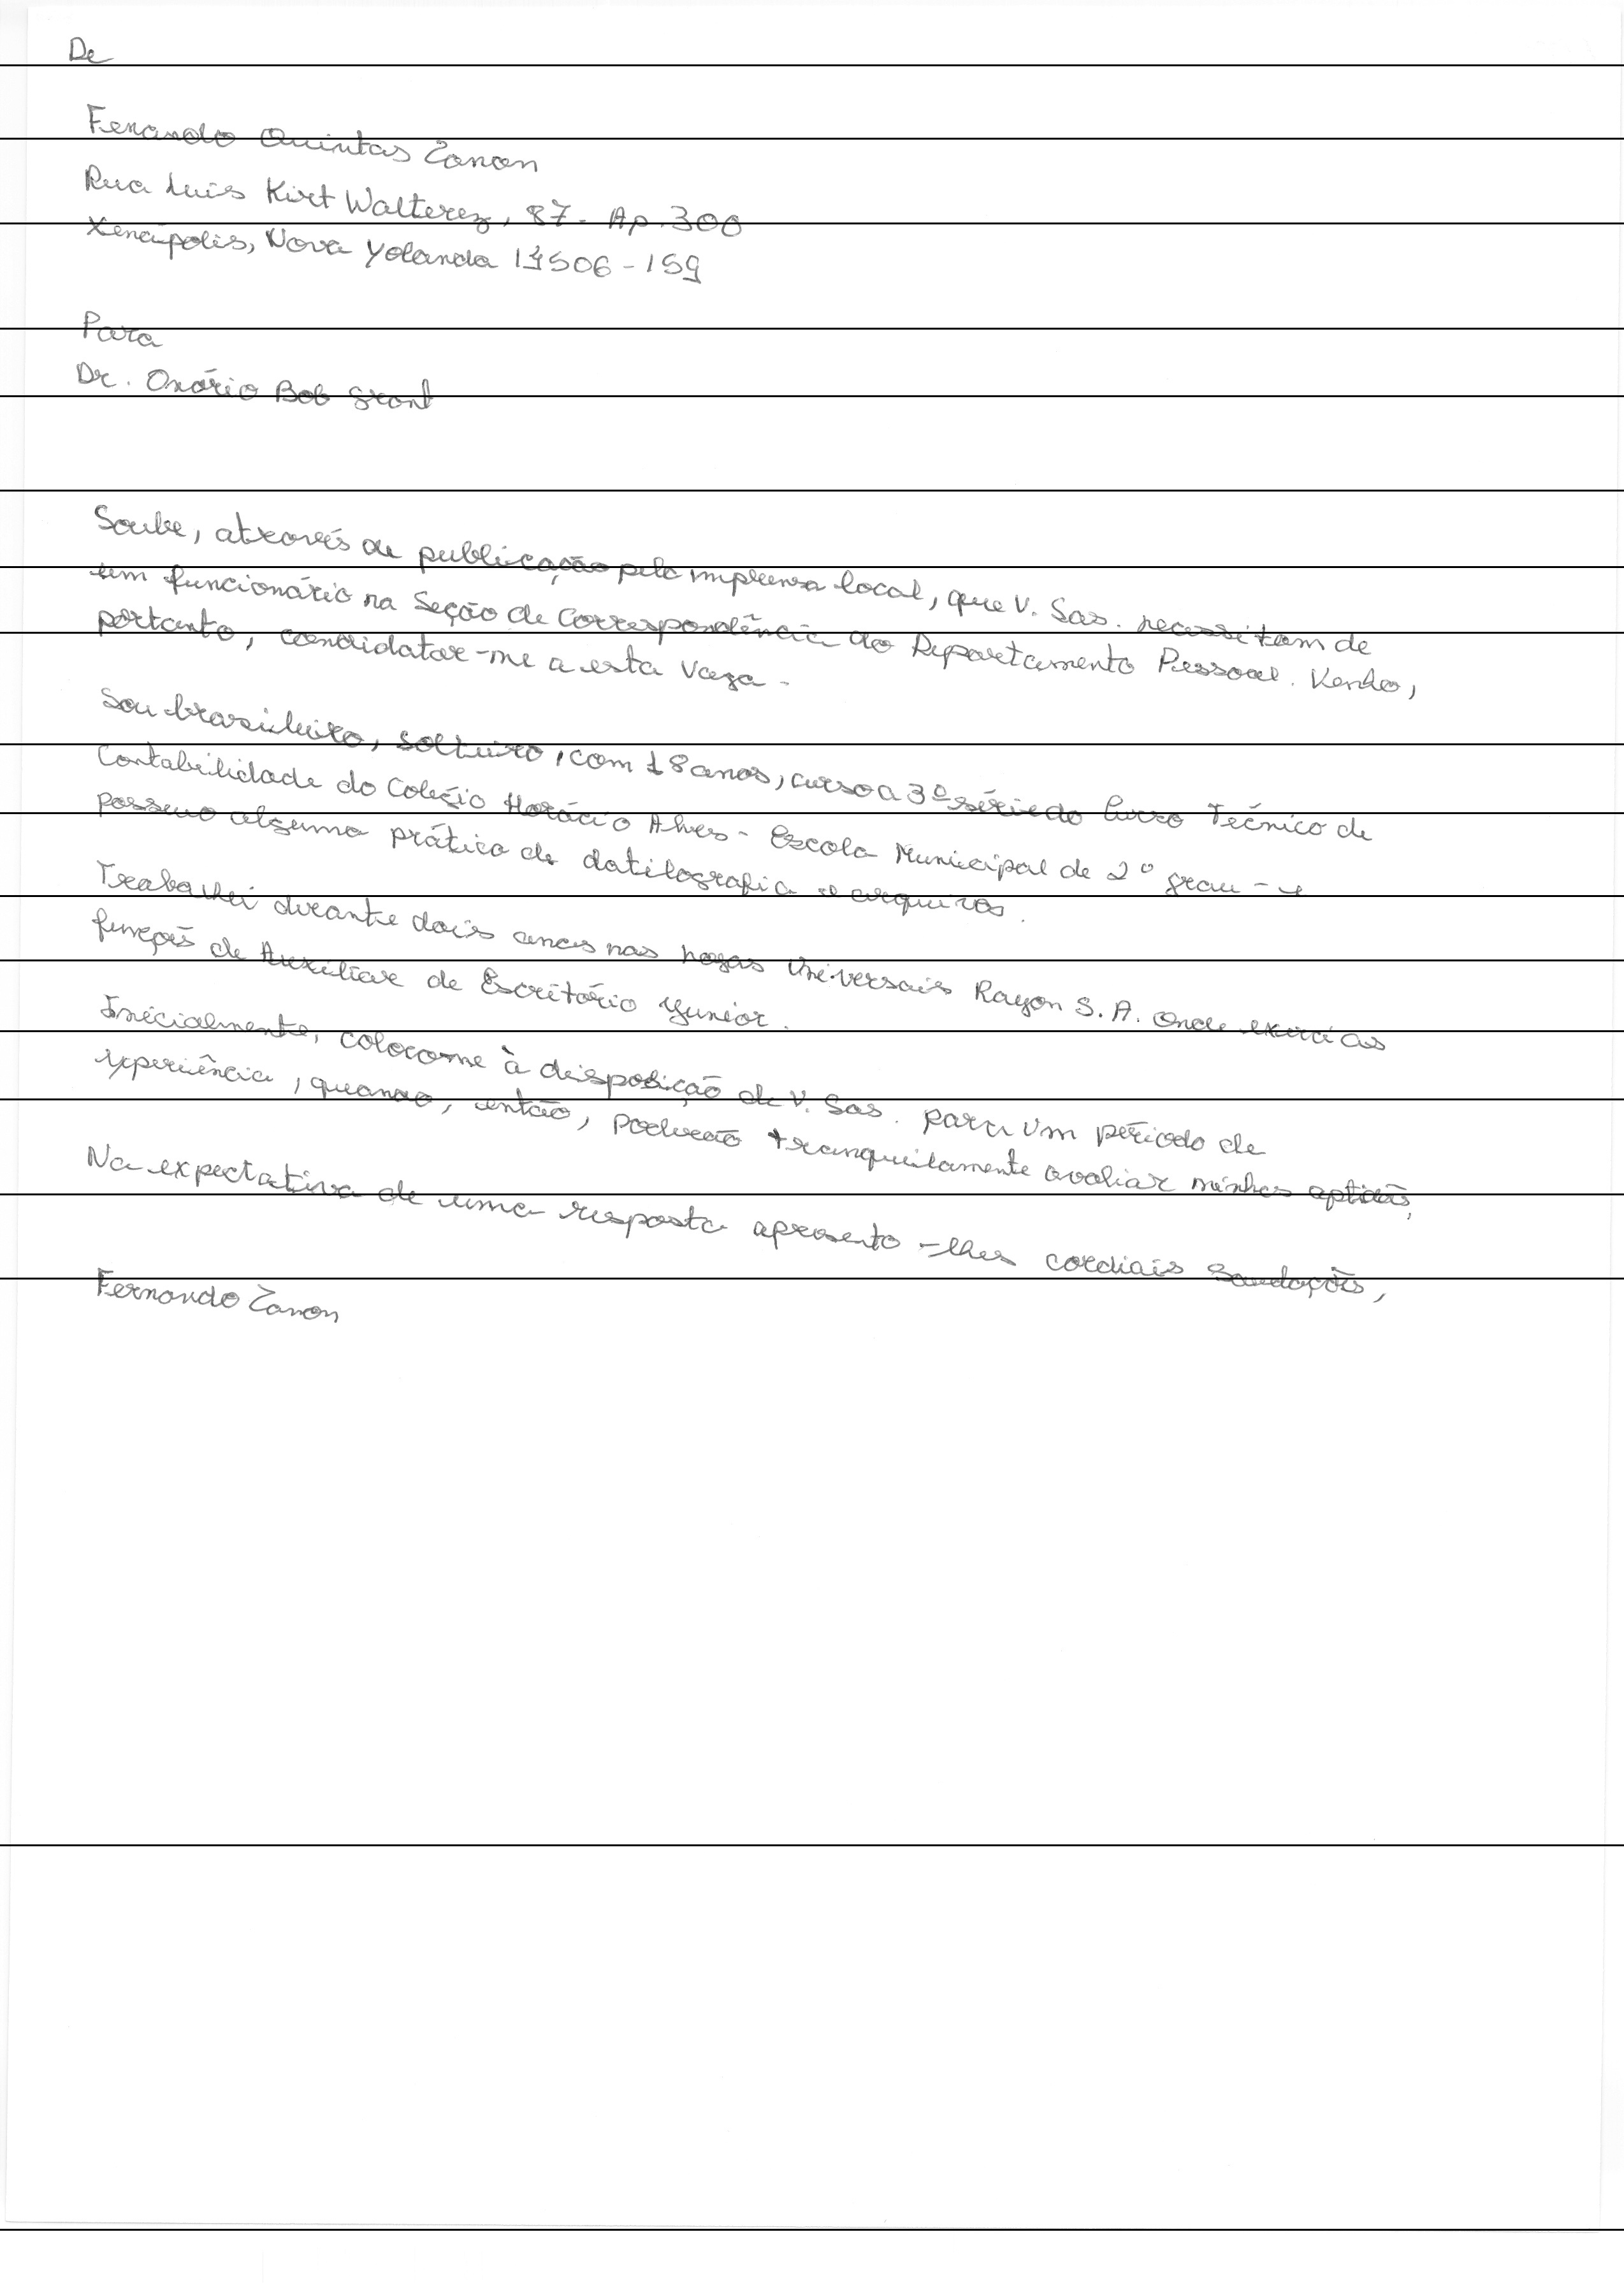 De
Fenando Quintas Zanon
Rua Luis Kirt Walterez, 87 - Ap. 300
Xenápolis, Nova Yolanda 11506-159
Para
Dr. Onório Bob Grant
Soube, através de publicação pela imprensa local, que V. Sas. necessitam de
um funcionário na Seção de Correspondência do Departamento Pessoal. Venho,
portanto, candidatar-me a esta vaga.
Sou brasileiro, solteiro, com 18 anos, curso a 3ª série do Curso Técnico de
Contabilidade do Colégio Horácio Alves - Escola Municipal de 2º grau - e
possuo alguma prática de datilografia e arquivos.
Trabalhei durante dois anos nas Universais Rayon S.A. onde exerci as
funções de Auxiliar de Escritório Yunior.
Inicialmente, coloco-me à disposição de V. Sas. para um período de
experiência, quando, então, poderão tranquilamente avaliar minhas aptidões.
Na expectativa de uma resposta apresento-lhes cordiais saudações,
Fernando Zanon